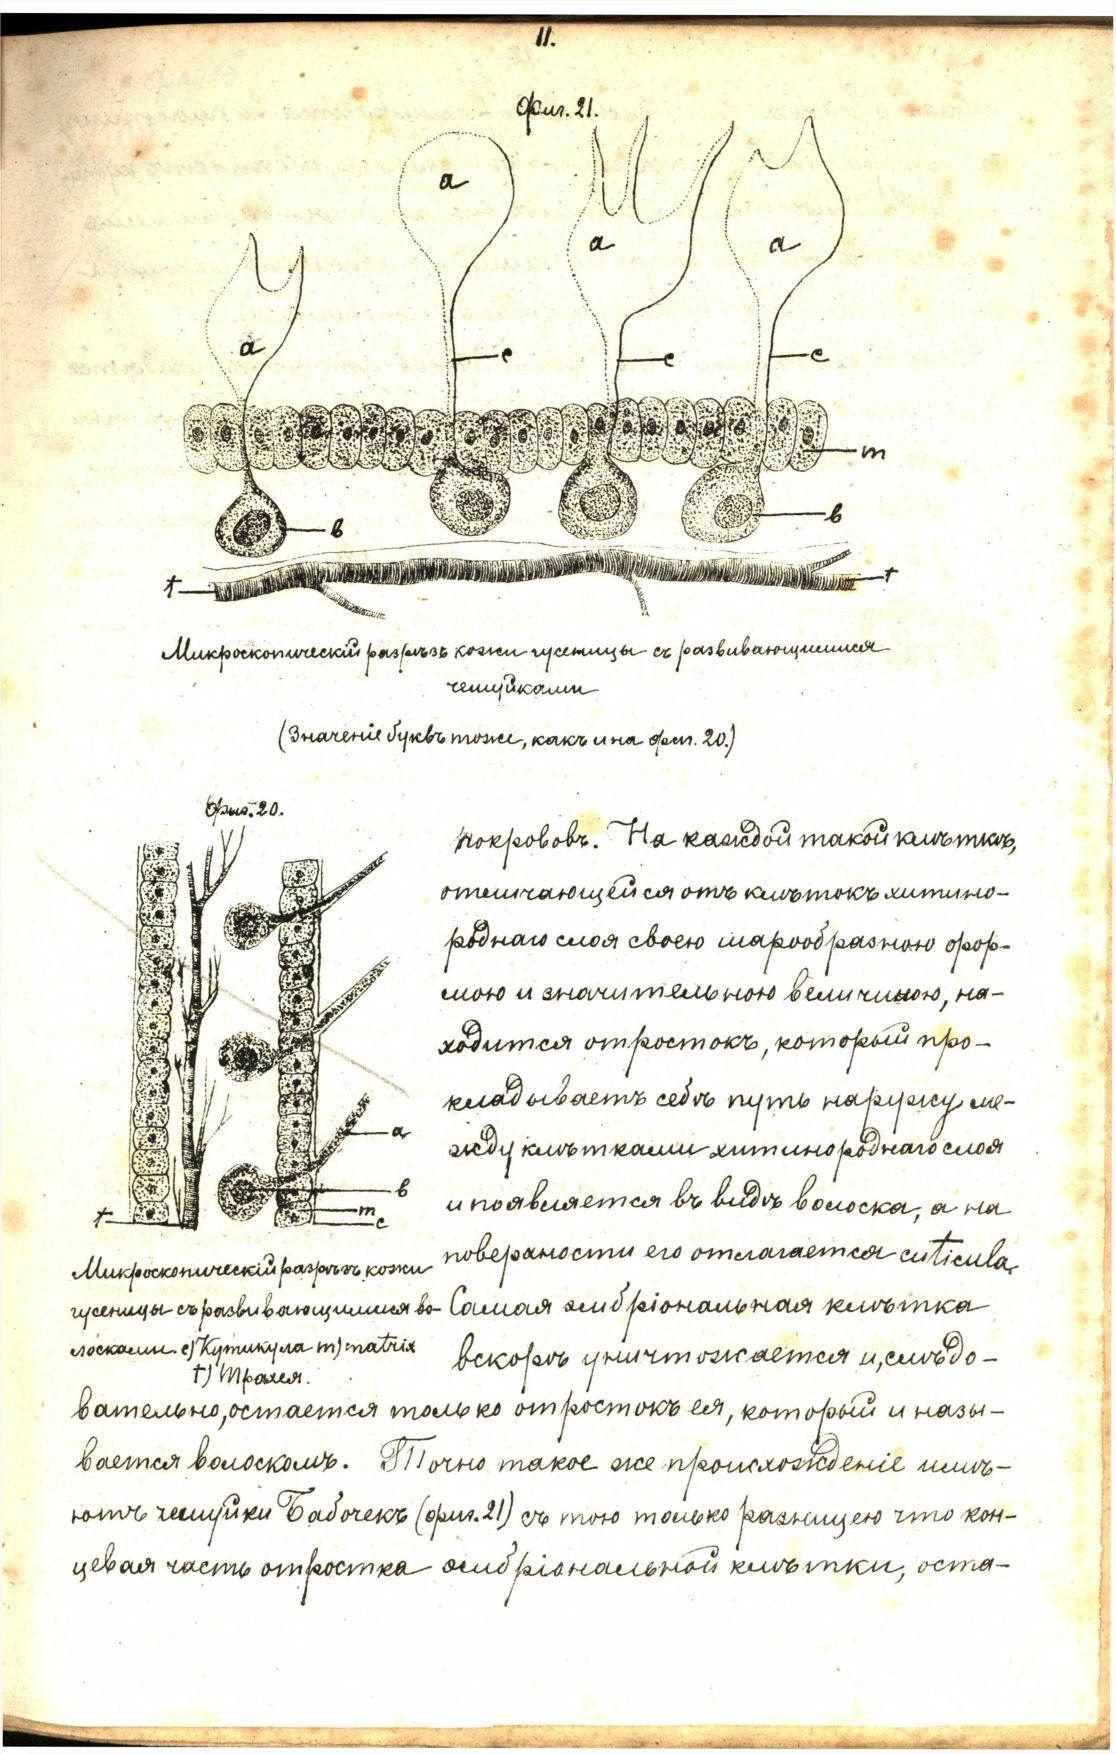 11.
Фиг. 21.
а
а
а
а
с
с
с
m
в
в
t
t
Микроскопическій разрѣзъ кожи гусеницы съ развивающимися
чешуйками
(Значеніе буквъ тоже, какъ и на фиг. 20.)
Фиг. 20.
а
в
m
с
t
Микроскопическій разрѣзъ кожи
гусеницы съ развивающимися во-
лосками. c) Кутикула m) matrix
t) Трахея.
покрововъ. На каждой такой клѣткѣ,
отличающейся отъ клѣтокъ хитино-
роднаго слоя своею шарообразною фор-
мою и значительною величиною, на-
ходится отростокъ, который про-
кладываетъ себѣ путь наружу ме-
жду клѣтками хитинороднаго слоя
и появляется въ видѣ волоска, а на
поверхности его отлагается cuticula.
Самая эмбріональная клѣтка
вскорѣ уничтожается и, слѣдо-
вательно, остается только отростокъ ея, который и назы-
вается волоскомъ. Точно такое же происхожденіе имѣ-
ютъ чешуйки Бабочекъ (фиг. 21) съ тою только разницею что кон-
цевая часть отростка эмбріональной клѣтки, оста-